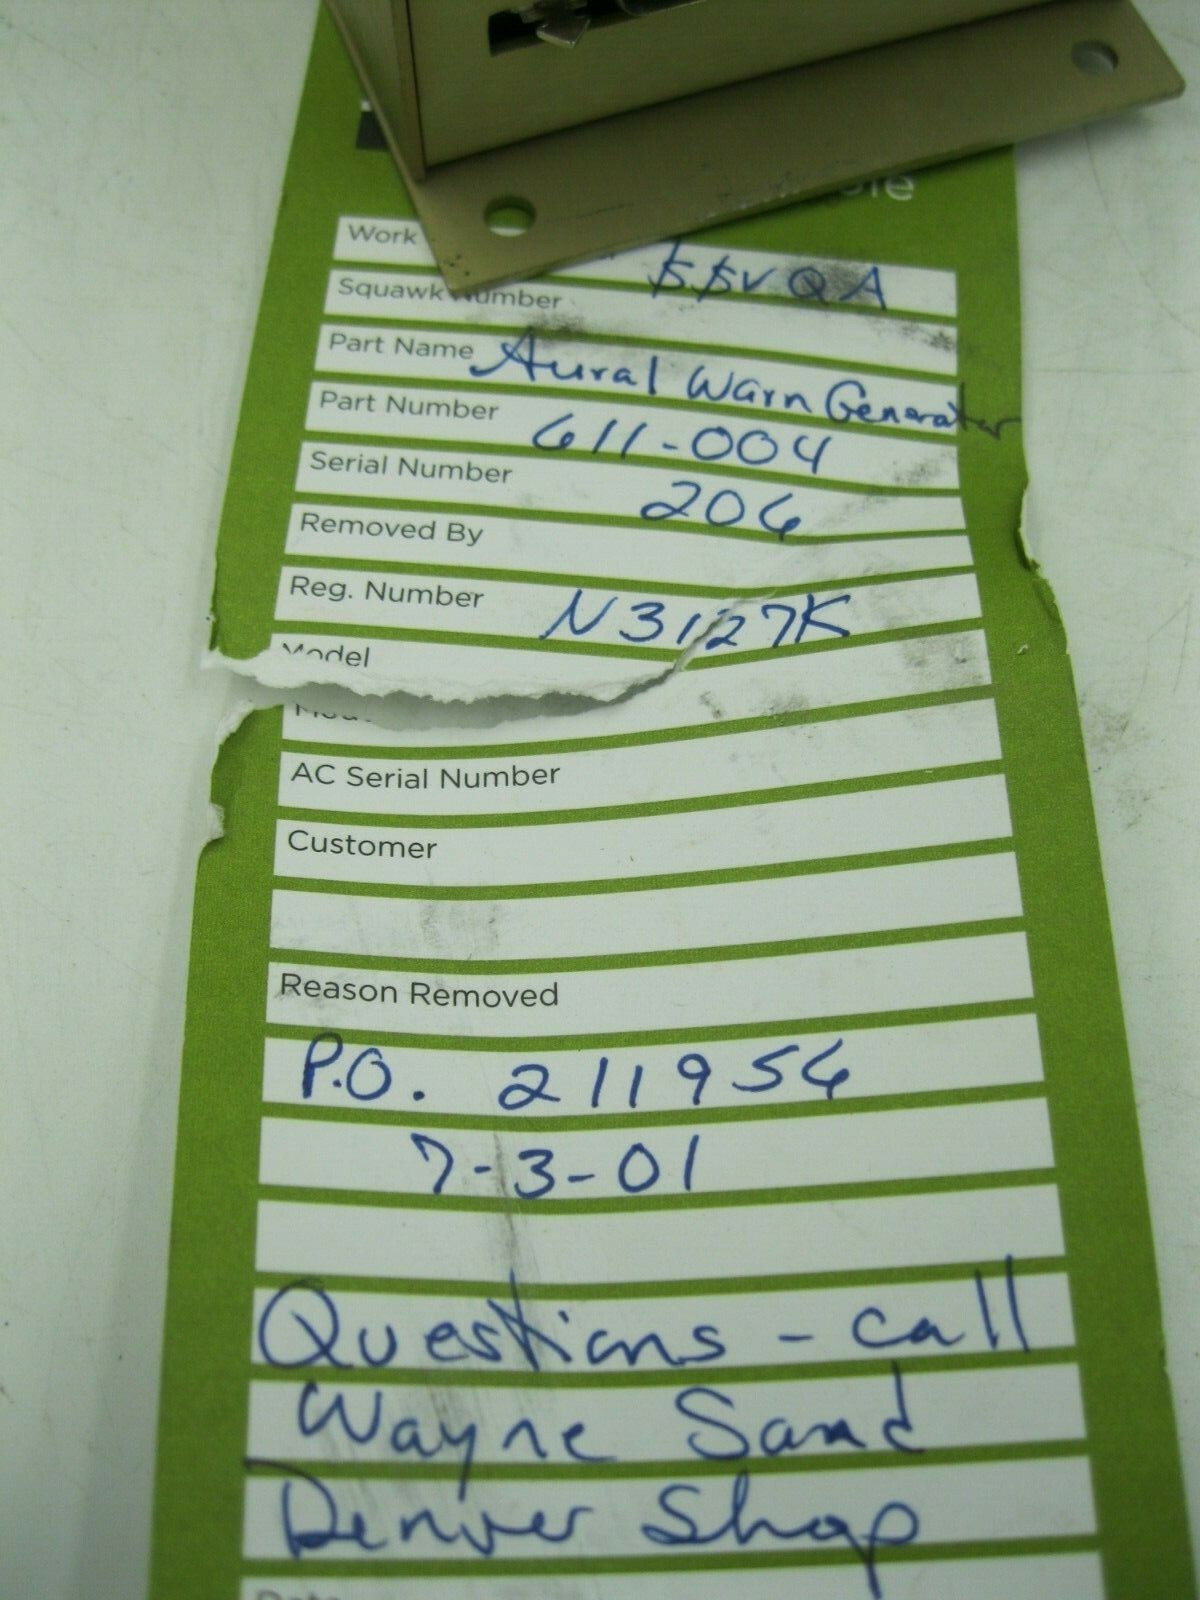 Work
$$VQA
Squawk Number
Part Name Aural Warn Generator
Part Number 611-004
Serial Number 206
Removed By
Reg. Number N3127K
Model
AC Serial Number
Customer
Reason Removed
P.O. 211956
7-3-01
Questions - call
Wayne Sand
Denver Shop